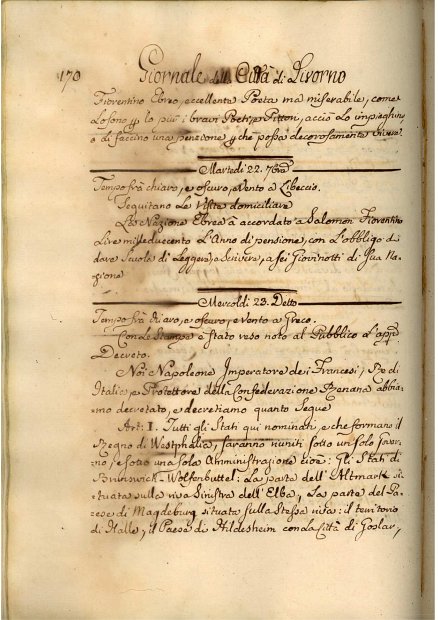 170 Giornale della Città di Livorno
Fiorentino Ebreo, eccellente Poeta ma miserabile, come
Lo sono p lo più i bravi Poeti, e Pittori, acciò Lo impieghino,
o di faccino una pensione, p che possa decorosamente vivere.
Martedì 22. 7bre
Tempo frà chiaro, e oscuro, e vento a Libeccio.
Seguitano Le Visite domiciliare
La Nazione Ebrea à accordato a Salomon Fiorentino
Lire milleducento L'Anno di pensione, con L'obbligo di
dare Scuola di Leggere, e Scrivere, a sei Giovinotti di Sua Na-
zione
Mercoldì 23. Detto
Tempo frà chiaro, e oscuro, e vento a Greco.
Con Le Stampe è stato reso noto al Pubblico L'app.
Decreto.
Noi Napoleone Imperatore dei Francesi, Re di
Italia, e Protettore della Confederazione Renana abbia-
mo decretato, e decretiamo quanto Segue
Art: I. Tutti gli Stati qui nominati, e che formano il
Regno di Westphalia, saranno riuniti sotto un solo Gover-
no, e sotto una sola Amministrazione cioè: Gli Stati di
Brunswick-Wolfenbuttel: La parte dell'Altmark si-
tuata sulla riva Sinistra dell'Elba, La parte del Pa-
ese di Magdeburg situata sulla Stessa riva: il territorio
di Halle, il Paese di Hildesheim con La Città di Goslar,